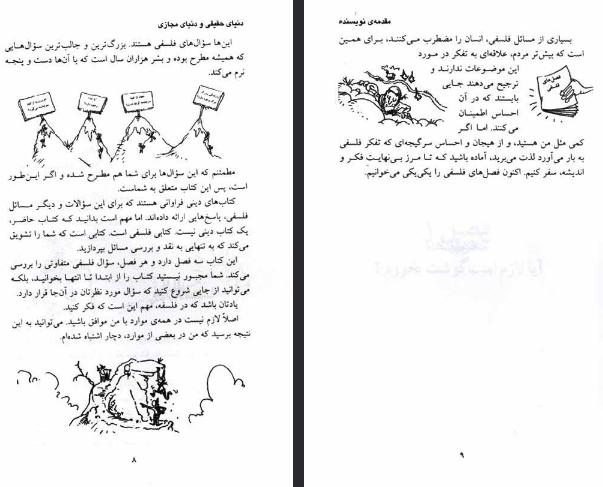 دنیای حقیقی و دنیای مجازی
این‌ها سؤال‌های فلسفی هستند. بزرگ‌ترین و جالب‌ترین سؤال‌هایی
که همیشه مطرح بوده و بشر هزاران سال است که با آن‌ها دست و پنجه
نرم می‌کند.
مطمئنم که این سؤال‌ها برای شما هم مطرح شده و اگر این‌طور
است، پس این کتاب متعلق به شماست.
کتاب‌های دینی فراوانی هستند که برای این سؤالات و دیگر مسائل
فلسفی، پاسخ‌هایی ارائه داده‌اند. اما مهم است بدانید که کتاب حاضر،
یک کتاب دینی نیست. کتابی فلسفی است. کتابی است که شما را تشویق
می‌کند که به تنهایی به نقد و بررسی مسائل بپردازید.
این کتاب سه فصل دارد و هر فصل، سؤال فلسفی متفاوتی را بررسی
می‌کند. شما مجبور نیستید کتاب را از ابتدا تا انتها بخوانید، بلکه
می‌توانید از جایی شروع کنید که سؤال مورد نظرتان در آن‌جا قرار دارد.
یادتان باشد که در فلسفه، مهم این است که فکر کنید.
اصلاً لازم نیست در همه‌ی موارد با من موافق باشید. می‌توانید به این
نتیجه برسید که من در بعضی از موارد، دچار اشتباه شده‌ام.
۸
مقدمه‌ی نویسنده
بسیاری از مسائل فلسفی، انسان را مضطرب می‌کنند، برای همین
است که بیش‌تر مردم، علاقه‌ای به تفکر در مورد
این موضوعات ندارند و
ترجیح می‌دهند جایی
بایستند که در آن
احساس اطمینان
می‌کنند. اما اگر
فصل‌های
فلسفی
کمی مثل من هستید، و از هیجان و احساس سرگیجه‌ای که تفکر فلسفی
به بار می‌آورد لذت می‌برید، آماده باشید که تا مرز بی‌نهایت فکر و
اندیشه، سفر کنیم. اکنون فصل‌های فلسفی را یکی‌یکی می‌خوانیم.
۹